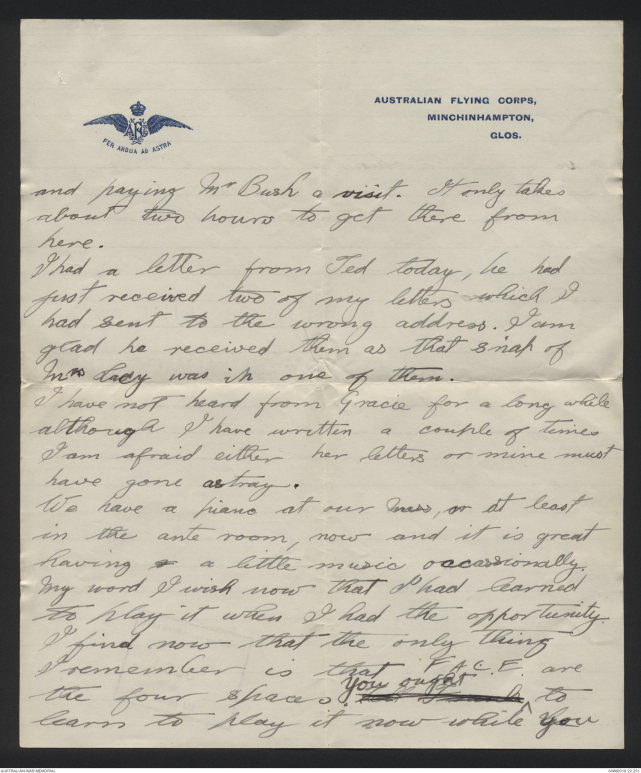 AUSTRALIAN FLYING CORPS,
MINCHINHAMPTON,
GLOS.
AFC
PER ARDUA AD ASTRA
and paying Mr Bush a visit. It only takes
about two hours to get there from
here.
I had a letter from Ted today, he had
just received two of my letters which I
had sent to the wrong address. I am
glad he received them as that snap of
Mrs Lacy was in one of them.
I have not heard from Gracie for a long while
although I have written a couple of times
I am afraid either her letters or mine must
have gone astray.
We have a piano at our mess, or at least
in the ante room, now and it is great
having a little music occassionally.
My word I wish now that I had learned
to play it when I had the opportunity.
I find now that the only thing
I remember is that F.A.C.E. are
the four spaces. You ought to
learn to play it now while you
AUSTRALIAN WAR MEMORIAL